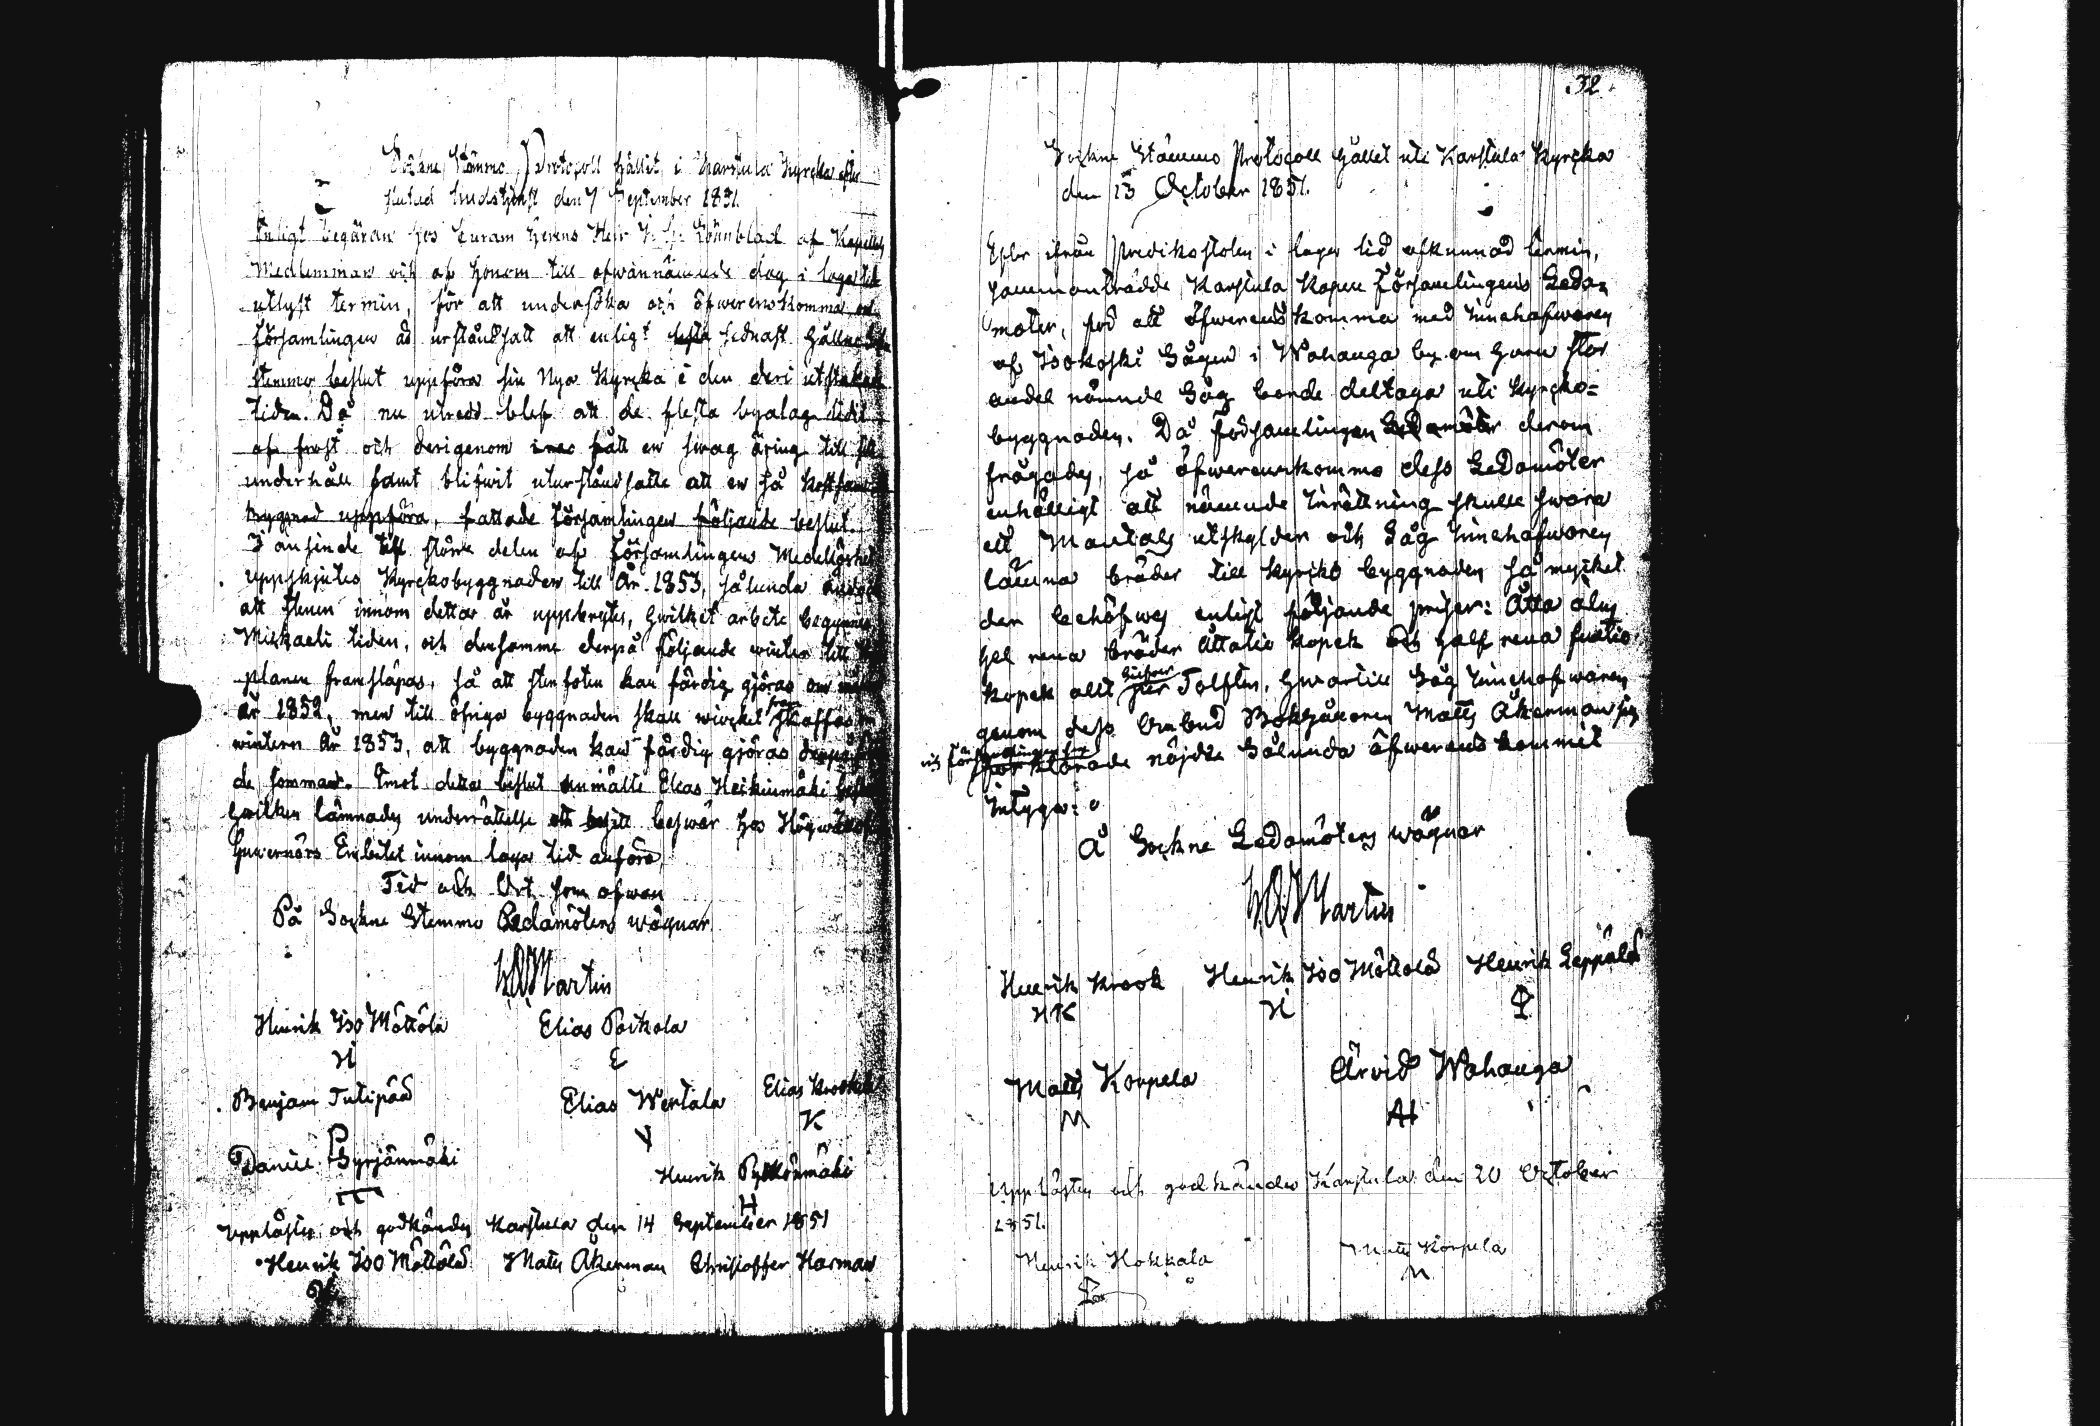 Sockne Stämmo Protocoll hållit i Karstula Kyrcka efter
slutad Gudstjenst den 7 September 1851.
Enligt begäran hos Curam Gerens Herr Lönnblad af Kapellets
Medlemmar och af honom till ofwannämnde dag i laga tid
utlyst termin, för att undersöka och öfwerenskomma om
Församlingen är urståndsatt att enligt sednast hållne
stemmo beslut uppföra sin Nya Kyrcka i den deri utstakade
tiden. Då nu utredd blef att de flesta byalag lidit
af frost och derigenom fått en swag äring till sitt
underhåll samt blifwit uturståndsatte att en så kostsam
byggnad uppföra, fattade Församlingen följande beslut.
I anseende till större delen af Församlingens Medellöshet
uppskjutes Kyrckobyggnaden till år 1853, sålunda
att stenen innom dettar år uppbrytes, hwilket arbete begynnes
Mickaeli tiden, och densamme derpå följande winter till
planen framsläpas, så att stenfoten kan färdig göras om
år 1852, men till öfriga byggnaden skall wircket framskaffas om
wintern år 1853, att byggnaden kan färdig gjöras derpå
de sommar. Emot detta beslut anmälte Elias Heikinmäki
hwilken lämnades underrättelse att beswär hos Högwälborne
Guvernörs Embetet innom laga tid anföra,
Tid och Ort som ofwan
På Sockne Stemmo Ledamöters wägnar
Martin
Henrik Iso Möttölä Elias Poikola
H E
Benjam Tulipää Elias Wertala Elias Krookila
V K
Daniel Syrjänmäki
Henrik Pylkönmäki
H
Uppläste och godkändes Karstula den 14 September 1851
Henrik Iso Möttölä Matts Åkerman Christoffer Harman
32.
Sockne Stämmo Protocoll hållet uti Karstula Kyrcka
den 13 October 1851.
Efter ifrån Predikostolen i laga tid afkunnad termin,
sammanträdde Karstula Kapell Församlingens Leda=
möter, för att öfwerenskomma med Innehafwaren
af Isokoski Sågen i Wahanga by om huru stor
andel nämnde Såg borde deltaga uti Kyrcko=
byggnaden. Då församlingen Ledamöter derom
frågades, så öfwerenskommo dess Ledamöter
enhälligt att nämnde Inrättning skulle swara
ett Mantals utskylder och Såg Innehafwaren
lämna bräder till Kyrko byggnaden så mycket
der behöfwes enligt följande priser: Åtta alns
hel rena bräder Åttatio kopek och half rena femtio
kopek allt silfwer per Tolften, hwartill Såg Innehafwaren
genom dess Ombud Bokhållaren Matts Åkerman sig
och Församlingen för
förklarade nöjde Sålunda öfwerens kommit
Intyga:
Å Sockne Ledamöters wägnar
Martin
Henrik Krook Henrik Iso Möttölä Henrik Leppälä
HK H
Matts Korpela Arvid Wahanga
M AH
Uppläst och godkändes Karstula den 20 October
1851.
Henrik Hokkala Matts Korpela
M